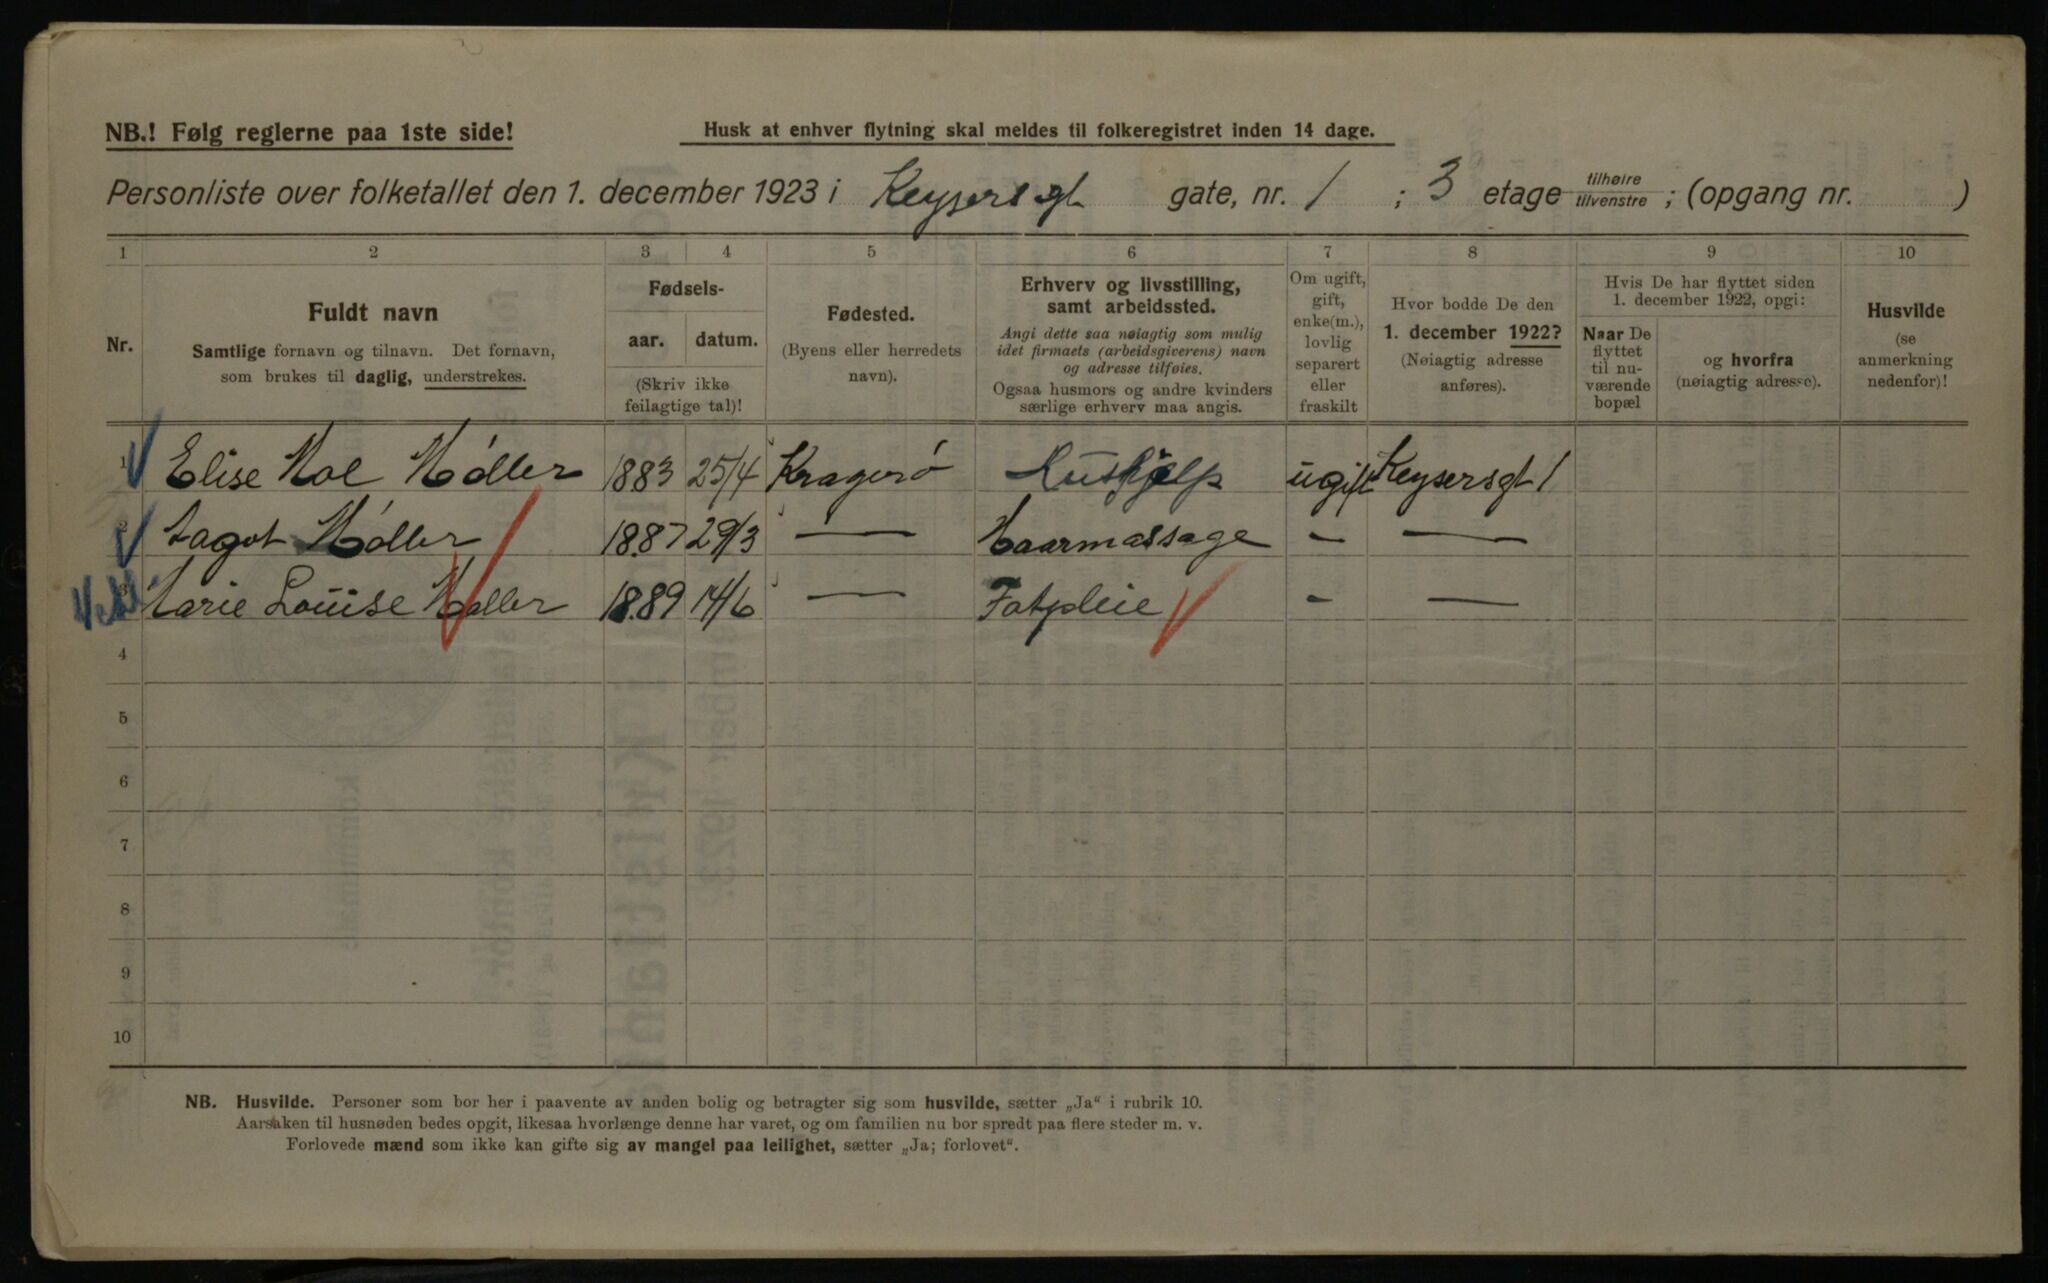 NB.! Følg reglerne paa 1ste side!
Husk at enhver flytning skal meldes til folkeregistret inden 14 dage.
Personliste over folketallet den 1. december 1923 i Keysersgt gate, nr. 1 ; 3 etage tilhøire tilvenstre ; (opgang nr. )
1 2 3 4 5 6 7 8 9 10
Nr.
Fuldt navn
Samtlige fornavn og tilnavn. Det fornavn,
som brukes til daglig, understrekes.
Fødsels-
aar. datum.
(Skriv ikke
feilagtige tal)!
Fødested.
(Byens eller herredets
navn).
Erhverv og livsstilling,
samt arbeidssted.
Angi dette saa nøiagtig som mulig
idet firmaets (arbeidsgiverens) navn
og adresse tilføies.
Ogsaa husmors og andre kvinders
særlige erhverv maa angis.
Om ugift,
gift,
enke(m.),
lovlig
separert
eller
fraskilt
Hvor bodde De den
1. december 1922?
(Nøiagtig adresse
anføres).
Hvis De har flyttet siden
1. december 1922, opgi:
Naar De
flyttet
til nu-
værende
bopæl
og hvorfra
(nøiagtig adresse).
Husvilde
(se
anmerkning
nedenfor)!
1 Elise Moe Møller 1883 25/4 Kragerø Hushjelp ugift Keysersgt 1
2 Dagot Møller 1887 29/3 — Haarmassage - —
3 Marie Louise Møller 1889 14/6 — Fotpleie - —
4
5
6
7
8
9
10
NB. Husvilde. Personer som bor her i paavente av anden bolig og betragter sig som husvilde, sætter „Ja“ i rubrik 10.
Aarsaken til husnøden bedes opgit, likesaa hvorlænge denne har varet, og om familien nu bor spredt paa flere steder m. v.
Forlovede mænd som ikke kan gifte sig av mangel paa leilighet, sætter „Ja; forlovet“.